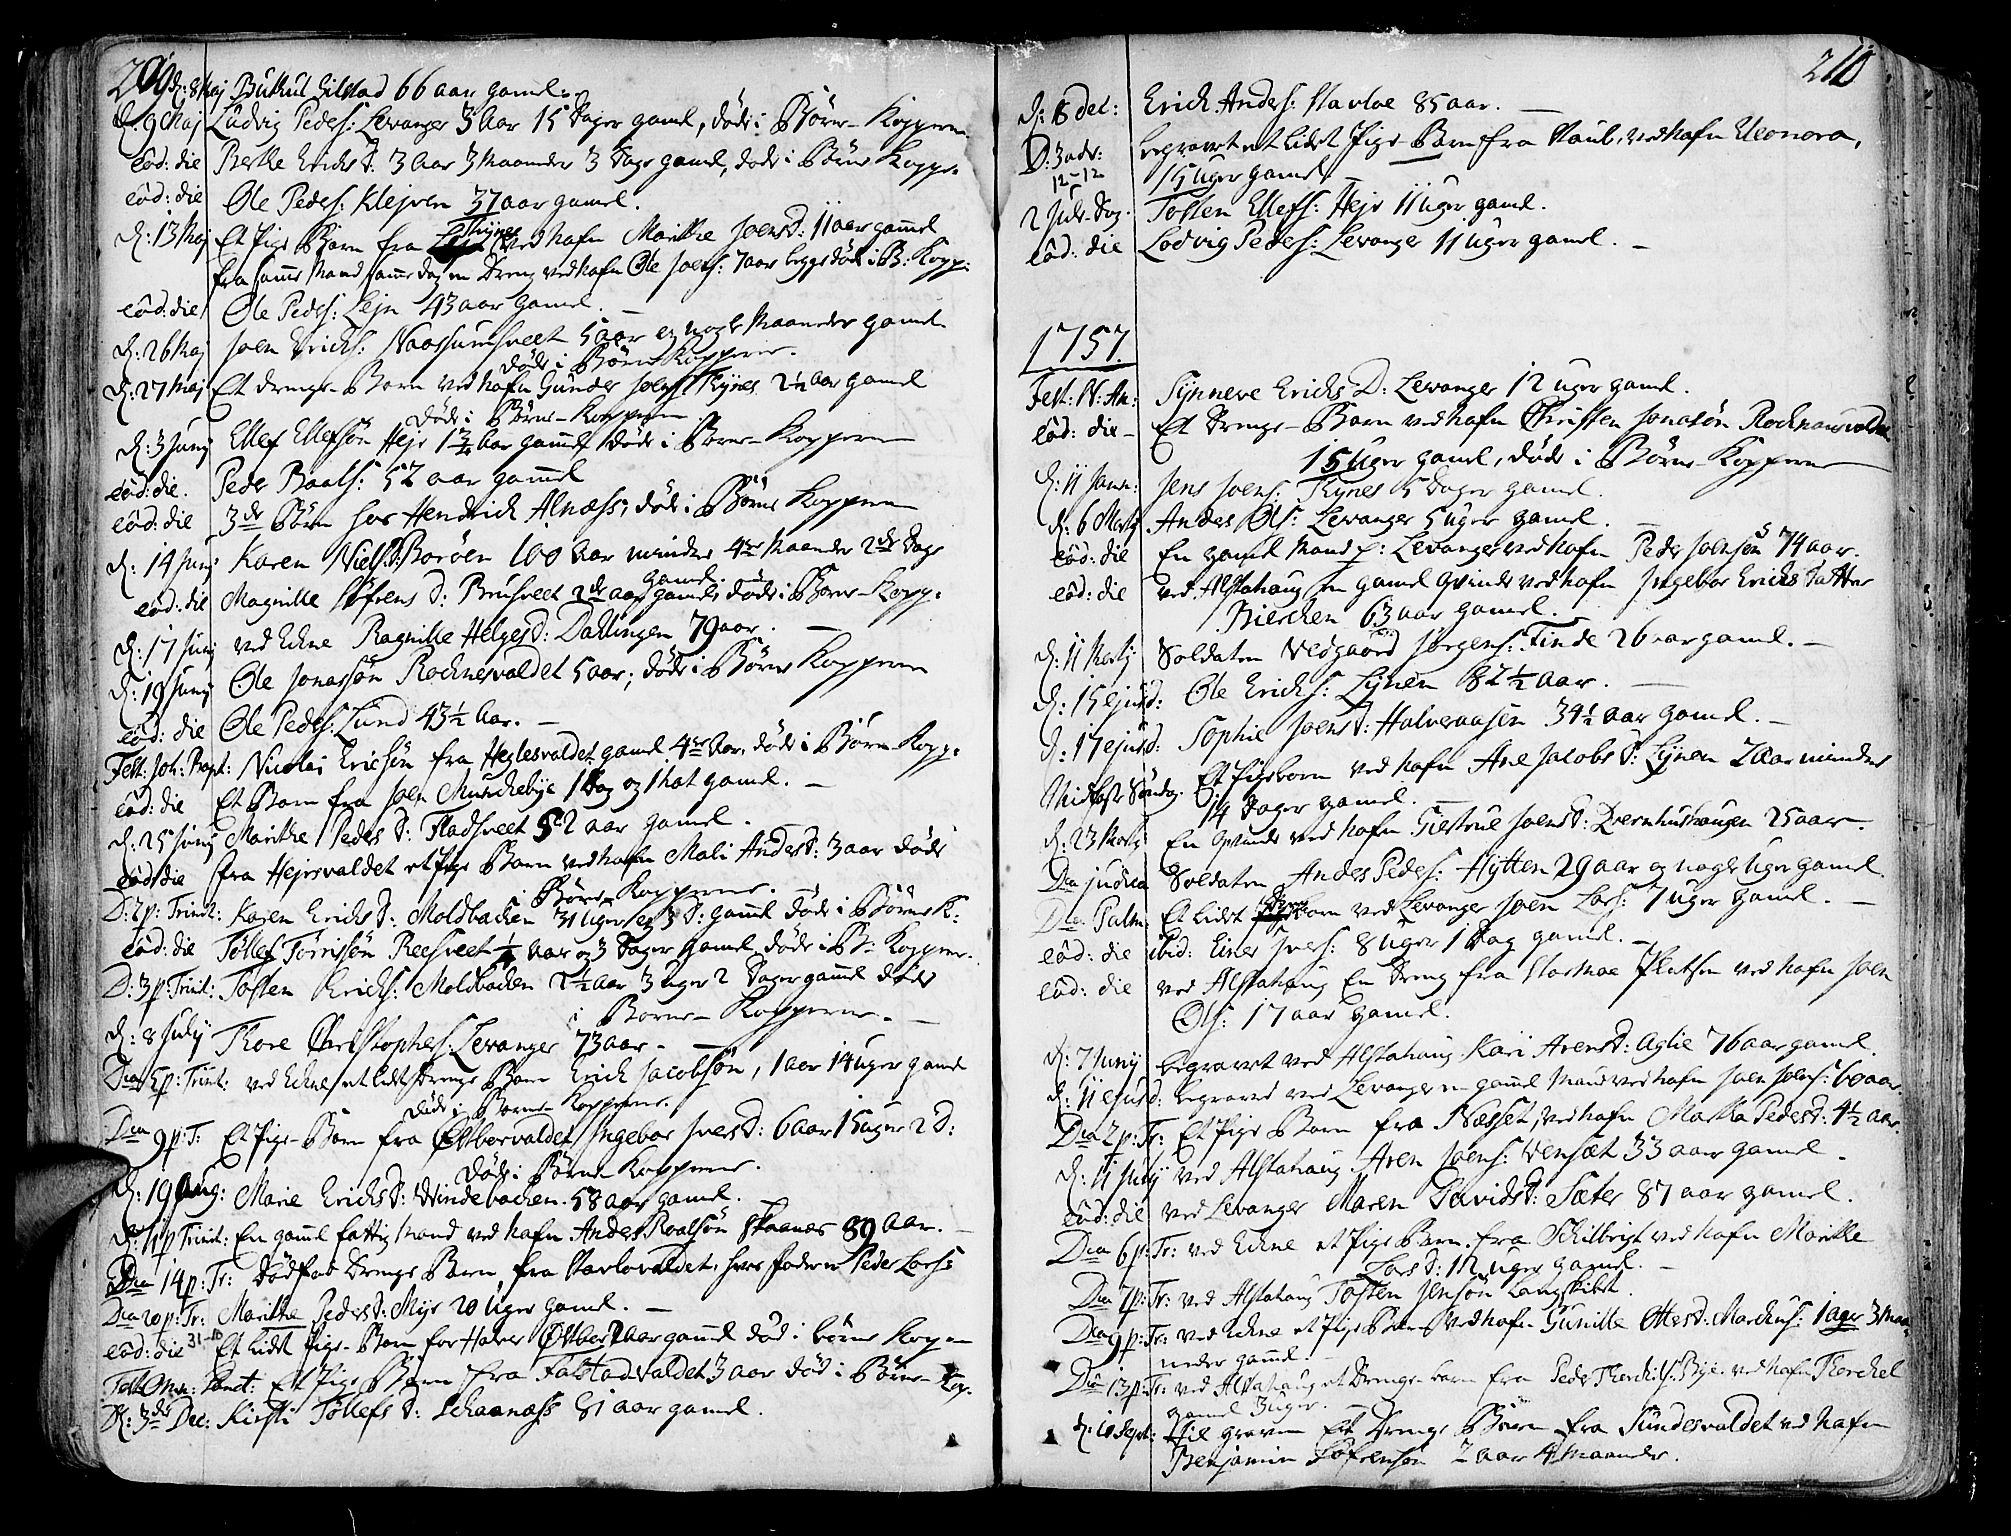 209
d: 8 Maj Gilstad 66 aar gamel.
d: 9 Maj Ludvig Peders: Levanger 3 Aar 15 Dager gaml, døde i Børne-Kopperne
eod: die Berthe Ericks D. 3 Aar 3 Maaneder 3 Dage gamel, døde i Børne Koppe.
eod: die Ole Peders: Klejven 37 aar gamel.
d: 13 Maj Et Pige Barn fra Thynes ved Nafn Marithe Joensd: 11 aar gammel
fra samme Mand samme dag en Dreng ved Nafn Ole Joens: 7 aar begge døde i B: Kopp:
eod: die Ole Peders: Lejn 43 aar gamel. —
d: 26 Maj Joen Ericks: Naassumhveet 5 aar og nogle Maaneder gamel
døde i Børne Kopperne.
d: 27 Maj Et drenge-Barn ved Nafn Gunder Joens: Rynes 2½ aar gamel
døde i Børne-Kopperne
d: 3 Junj Ellef Ellefsøn Heje 1¾ Aar gammel døde i Børne-Kopperne
eod: die. Peder Baals: 52 aar gammel
eod: die 3de Børn hos Hendrick Alnæss; døde i Børne Kopperne
d: 14 Junj Karen Niels D: Borøen 100 Aar minder 4re Maaneder 2de Dage
gamel.
eod: die Magnille Søfrens D: Brusveet 2de aar gamel døde i Børne-Kopp:
d: 17 Junj ved Echne Ragnille Helgesd: Dahlingen 79 aar. —
d: 19 Junj Ole Jonassøn Rochnesvaldet 5 aar; døde i Børne Kopperne
eod: die Ole Peders: Lund 43½ Aar. —
Fest: Joh: Bapt: Nicolai Ericsøn fra Heglesvaldet gamel 4re Aar, døde i Børne-Kopp:
eod: die Et Barn fra Joen Munchebye 1 Dag og 1 Nat gamel. —
d: 25 Junj Marithe Peders D: Fladsveet 52 aar gamel.
eod: die fra Hejesvaldet et Pige Barn ved Nafn Mali Andersd: 3 aar døde
i Børne Kopperne.
D: 2 p: Trinit: Karen Ericks D: Moldbachen 31 Uger og 3 D: gammel døde i Børne K:
eod: die Tøllef Tørrissøn Reesveet ½ Aar og 3 Dager gamel, døde i B: Kopper.
D: 3 p: Trinit: Tosten Ericks: Moldbachen 2½ aar 3 uger 2 Dager gammel døde
i Børne-Kopperne. —
d: 8 Julij Thore Christophers: Levanger 73 aar. —
Dca 5 p: Trinit: ved Echne et lidet drenge Barn Erick Jacobsøn, 1 aar 14 uger gamel
døde i Børne-Kopperne.
Dca 9 p: T: Et Pige-Barn fra Øttborvaldet Ingebor Iversd: 6 aar 15 uger 2 D:
døde i Børne Kopperne.
d: 19 Aug: Marie Ericksd: Windebachen. 58 aar gamel.
D: 11 p Trinit: En gammel fattig Mand ved Nafn Anders Roalsøn Skaanes 89 Aar. —
Dca 14 p: Tr: Dødfød Drenge Barn, fra Stavlovaldet, hvis fader er Peder Lars:
Dca 20 p: Tr: Marithe Peders D: Myr 20 Uger gamel. —
eod: die 31-10 Et lidet Pige-Barn for Halvor Øttber 2 aar gammel død i børne Kop-
Fest: Omn: Sanct: Et Pige Barn fra Falstad-Valdet 3 aar død i Børne-Kop.
D: 3de Dec: Kirsti Tøllefs D: Schaanæss 81 aar gamel.
210
d: 8 Dec: Erick Anders: Stavloe 85 aar. —
D: 3 adv: begravet et lidet Pige-Barn fra Staul, ved Nafn Eleonora,
12-12 15 Uger gamel —
2 Jule-Dag. Tosten Ellefs: Heje 11 uger gamel.
eod: die Lodvig Peders: Levanger 11 uger gamel. —
1757.
Fest: N: An: Synneve Ericks D: Levanger 12 uger gamel.
eod: die - Et Drenge-Barn ved Nafn Christen Jonasøn Rochnesvaldet
15 Uger gamel, døde i Børne-Kopperne
d: 11 Janu: Jens Joens: Rynes 5 Dager gamel.
d: 6 Martj Anders Ols: Levanger 5 uger gamel. —
eod: die En gamel Mand p: Levanger ved Nafn Peder Joensøn 74 aar.
eod: die ved Alstahaug en gamel Qvinde ved Nafn Ingebor Ericks Datter
Bierchen 63 aar gamel.
d: 11 Martj Soldaten Vedgaard Jørgens: Finde 26 aar gamel. —
d: 15 ejusd: Ole Ericks: Lynen 82½ aar. —
d: 17 ejusd: Sophie Joensd: Halveraasen 34½ aar gamel. —
Midfaste Søndag. Et Pigebarn ved Nafn Ane Jacobs D: Lynen 2 Aar minder
14 Dager gamel. —
d: 23 Martj En Qvinde ved Nafn Giertrue Joensd: Qvernhushaugen 25 aar.
Dca judica Soldaten Anders Peders: Hytten 29 aar og nogle Uger gamel.
Dca Palm: Et lidet Barn ved Levanger Joen Lars: 7 uger gamel. —
eod: die ibid: Einer Ivers: 8 Uger 1 Dag gamel. —
eod: die ved Alstahaug En Dreng fra Stormoe Pladsen ved Nafn Joen
Ols: 17 aar gamel.
d: 7 Junij begravet ved Alstahaug Kari Arensd: Aglie 76 aar gamel.
d: 11 ejusd: begraved ved Levanger en gammel Mand ved Nafn Joen Joens: 60 aar.
Dca 2 p: Tr: Et Pige Barn fra Næsset, ved Nafn Martha Pedersd: 4½ aar.
d: 11 Julij ved Alstahaug Aren Joens: Vensæt 33 aar gamel.
eod: die ved Levanger Maren Davidsd: Sæter 87 aar gamel.
Dca 6 p: Tr: ved Echne et Pige Barn fra Schilbrejt ved Nafn Marithe
Lars D: 12 uger gamel. —
Dca 7 p: Tr: ved Alstahaug Tosten Jensøn Langskibet.
Dca 9 p: Tr: ved Echne et Pige Barn ved Nafn Gunille Ottesd: Marchus: 1 ager 3 Maa-
neder gammel. —
Dca 13 p: Tr: ved Alstahaug et Drenge-barn fra Peder Thorchils: Bye. ved Nafn Thorchel
gamel 3 uger.
d: 10 Sept: graven Et Drenge Barn fra Sundesvaldet ved Nafn
Benjamin Søfrensøn 2 aar 4 Maander.